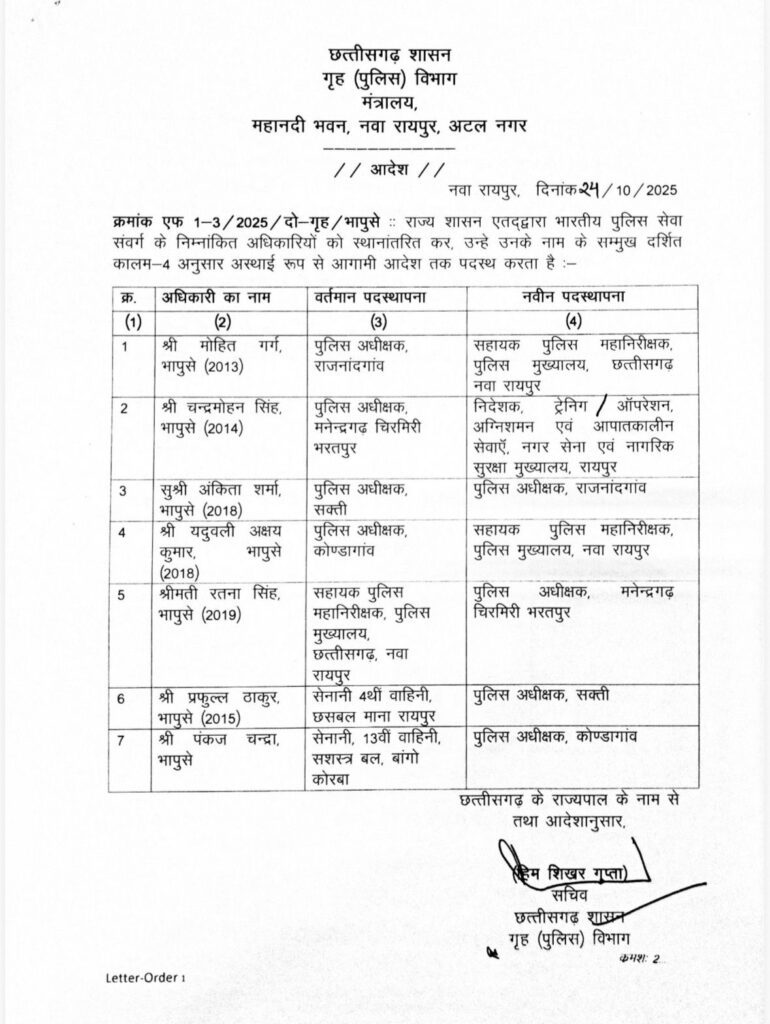 छत्तीसगढ़ शासन
गृह (पुलिस) विभाग
मंत्रालय,
महानदी भवन, नवा रायपुर, अटल नगर
-------------
// आदेश //
नवा रायपुर, दिनांक 24/10/2025
क्रमांक एफ 1-3/2025/दो-गृह/भापुसे :: राज्य शासन एतद्द्वारा भारतीय पुलिस सेवा
संवर्ग के निम्नांकित अधिकारियों को स्थानांतरित कर, उन्हे उनके नाम के सम्मुख दर्शित
कालम-4 अनुसार अस्थाई रूप से आगामी आदेश तक पदस्थ करता है :-
क्र. अधिकारी का नाम वर्तमान पदस्थापना नवीन पदस्थापना
(1) (2) (3) (4)
1 श्री मोहित गर्ग, पुलिस अधीक्षक, सहायक पुलिस महानिरीक्षक,
भापुसे (2013) राजनांदगांव पुलिस मुख्यालय, छत्तीसगढ़
नवा रायपुर
2 श्री चन्द्रमोहन सिंह, पुलिस अधीक्षक, निदेशक, ट्रेनिग / ऑपरेशन,
भापुसे (2014) मनेन्द्रगढ़ चिरमिरी अग्निशमन एवं आपातकालीन
भरतपुर सेवाऍं, नगर सेना एवं नागरिक
सुरक्षा मुख्यालय, रायपुर
3 सुश्री अंकिता शर्मा, पुलिस अधीक्षक, पुलिस अधीक्षक, राजनांदगांव
भापुसे (2018) सक्ती
4 श्री यदुवली अक्षय पुलिस अधीक्षक, सहायक पुलिस महानिरीक्षक,
कुमार, भापुसे कोण्डागांव पुलिस मुख्यालय, नवा रायपुर
(2018)
5 श्रीमती रतना सिंह, सहायक पुलिस पुलिस अधीक्षक, मनेन्द्रगढ़
भापुसे (2019) महानिरीक्षक, पुलिस चिरमिरी भरतपुर
मुख्यालय,
छत्तीसगढ़, नवा
रायपुर
6 श्री प्रफुल्ल ठाकुर, सेनानी 4थीं वाहिनी, पुलिस अधीक्षक, सक्ती
भापुसे (2015) छसबल माना रायपुर
7 श्री पंकज चन्द्रा, सेनानी, 13वीं वाहिनी, पुलिस अधीक्षक, कोण्डागांव
भापुसे सशस्त्र बल, बांगो
कोरबा
छत्तीसगढ़ के राज्यपाल के नाम से
तथा आदेशानुसार,
(हिम शिखर गुप्ता)
सचिव
छत्तीसगढ़ शासन
गृह (पुलिस) विभाग
क्रमशः 2
Letter-Order 1